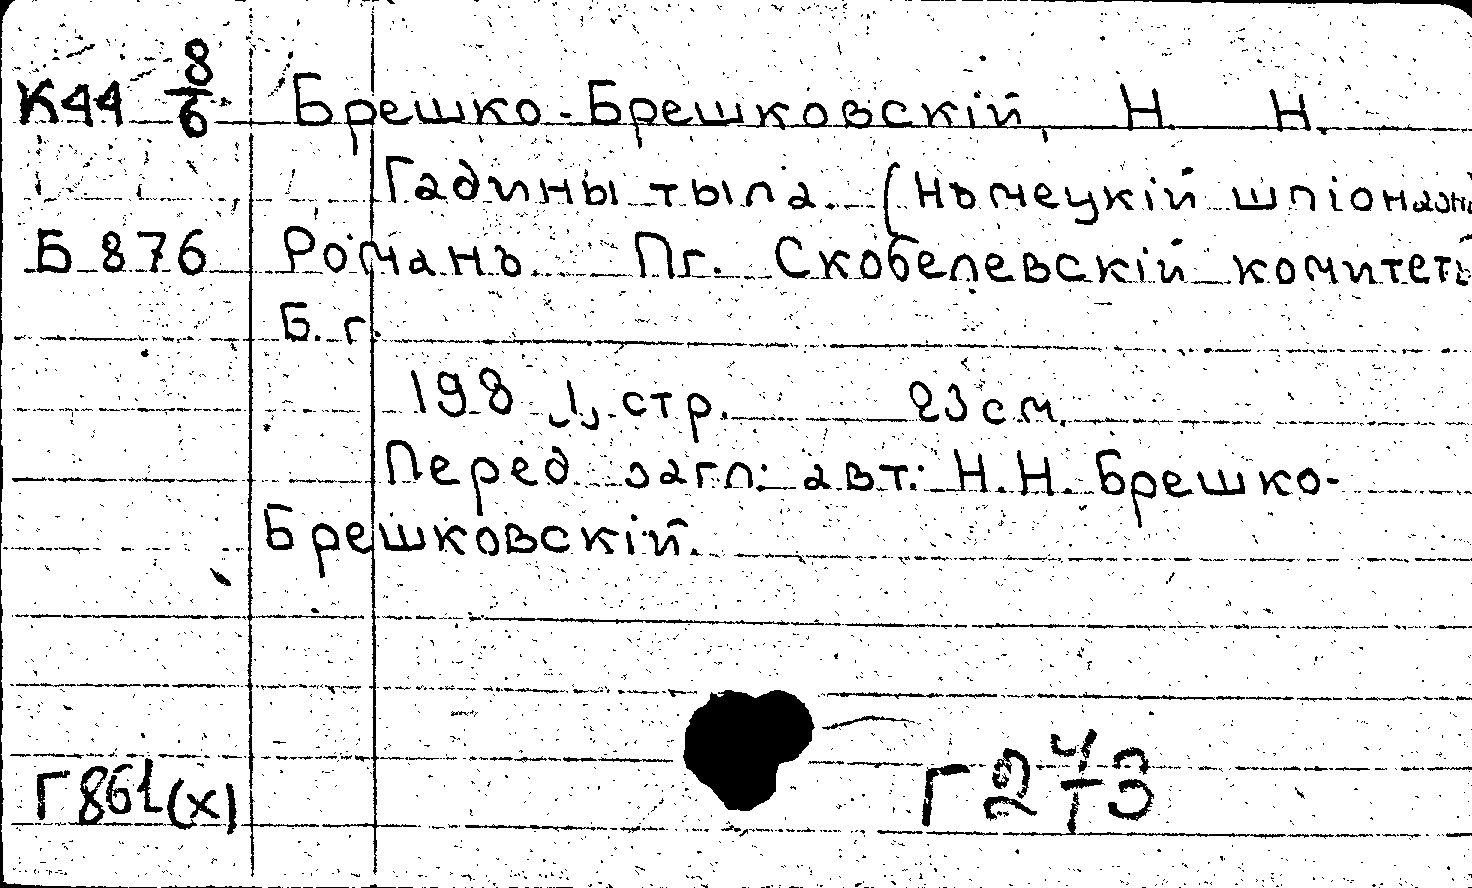 К44 8/6 Брешко-Брешковскій, Н. Н.
Гадины тыла. (Нѣмецкій шпіонаж
Б 876 Романъ. Пг. Скобелевскій комитетъ
Б. г.
198 ,1, стр. 23 см.
Перед загл: авт: Н.Н. Брешко-
Брешковскій.
Г 861(х) Г 273